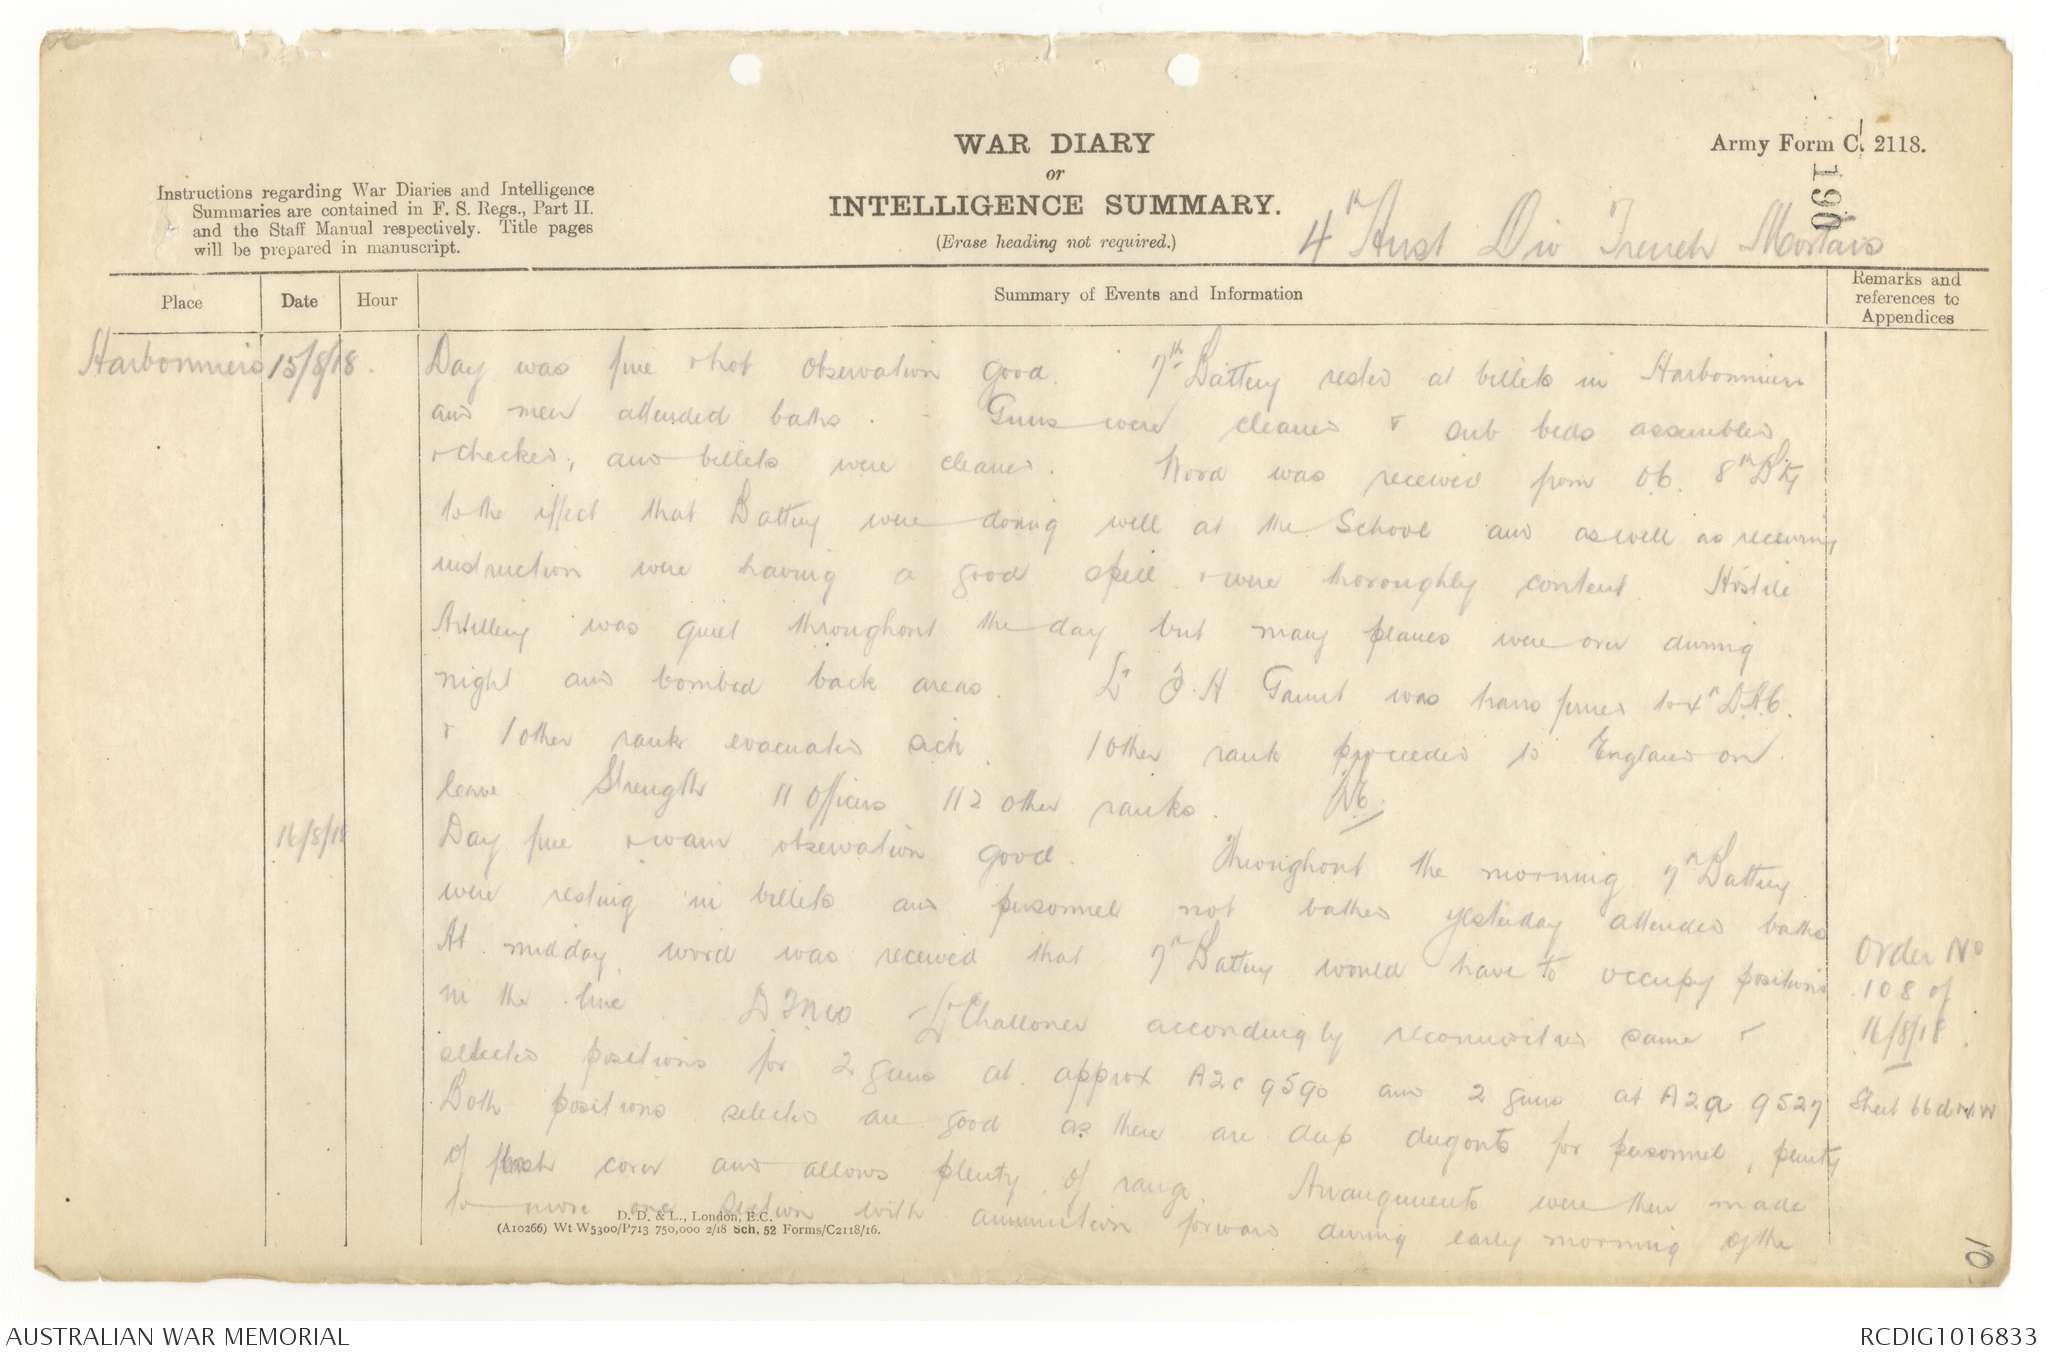 WAR DIARY
or
INTELLIGENCE SUMMARY.
(Erase heading not required.)
Army Form C. 2118.
190
Instructions regarding War Diaries and Intelligence
Summaries are contained in F. S. Regs., Part II.
and the Staff Manual respectively. Title pages
will be prepared in manuscript.
4th Aust Div Trench Mortars
Place
Date
Hour
Summary of Events and Information
Remarks and
references to
Appendices
Harbonniers 15/8/18.
Day was fine & hot observation good. 7th Battery rested at billets in Harbonniers
and men attended baths. Guns were cleaned & sub beds assembled
& checked, and billets were cleaned. Word was received from OC. 8th Bty
to the effect that Battery were doing well at the School and as well as receiving
instruction were having a good spell & were thoroughly content. Hostile
Artillery was quiet throughout the day but many planes were over during
night and bombed back areas. Lt F. H Gaunt was transferred to 4th D.A.C.
& 1 other rank evacuated sick. 1 other rank proceeded to England on
leave. Strength 11 Officers 112 other ranks.
16/8/18
Day fine & warm observation good. Throughout the morning 7th Battery
were resting in billets and personnel not bathed yesterday attended baths
At midday word was received that 7th Battery would have to occupy positions
in the line. DTMO Lt Challoner accordingly reconnoitred same &
selected positions for 2 guns at approx A2c 9590 and 2 guns at A2a 9527
Both positions selected are good as there are deep dugouts for personnel, plenty
of cover and allows plenty of range. Arrangements were then made
to move one section with ammunition forward during early morning of the
Order No
108 of
16/8/18.
Sheet 66d
D. D. & L., London, E.C.
(A10266) Wt W5300/P713 750,000 2/18 Sch. 52 Forms/C2118/16.
10
AUSTRALIAN WAR MEMORIAL
RCDIG1016833